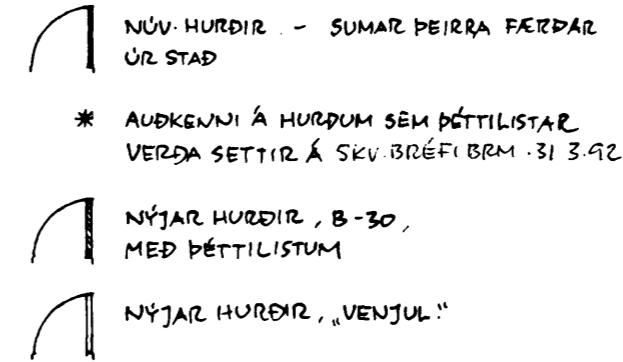 NÚV. HURÐIR - SUMAR ÞEIRRA FÆRÐAR
ÚR STAÐ
* AUÐKENNI Á HURÐUM SEM ÞÉTTILISTAR
VERÐA SETTIR Á SKV. BRÉFI BRM. 31 3.92
NÝJAR HURÐIR, B-30,
MEÐ ÞÉTTILISTUM
NÝJAR HURÐIR, „VENJUL."